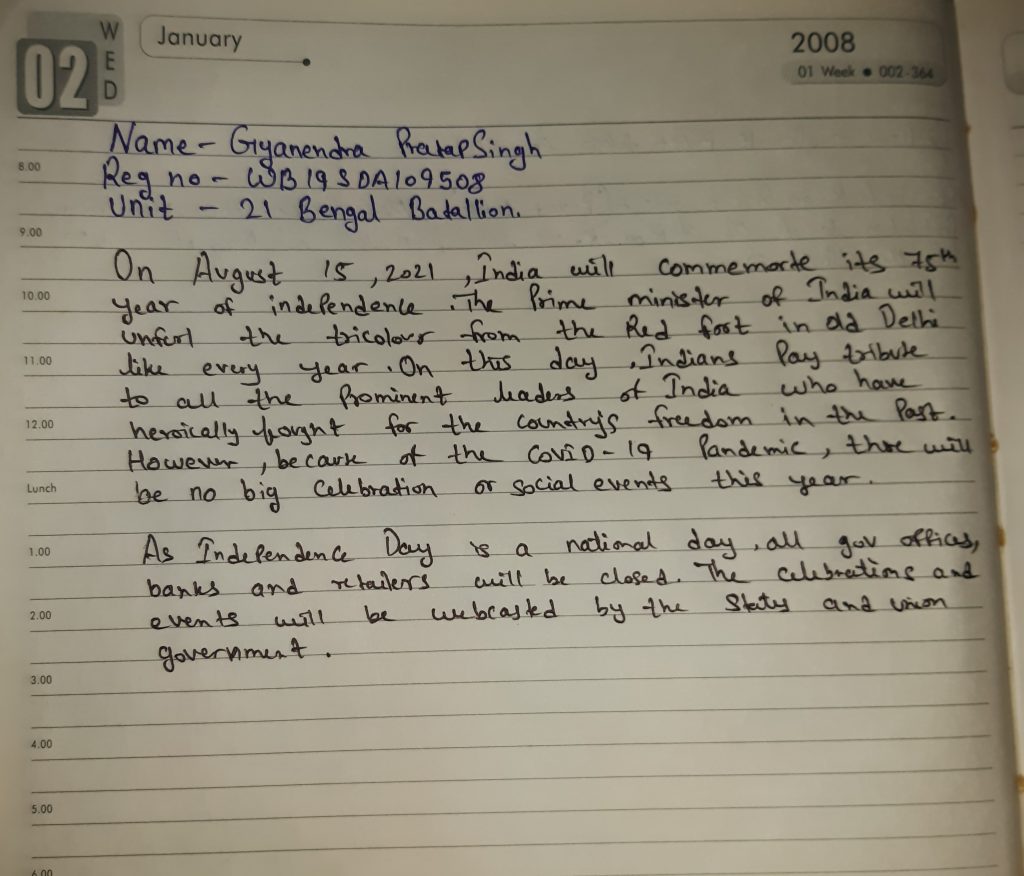 02
WED
January
2008
01 Week • 002-364
Name - Gyanendra Pratap Singh
8.00
Reg no - WB19SDA109508
Unit - 21 Bengal Batallion.
9.00
On August 15, 2021, India will commemorte its 75th
10.00
year of independence. The Prime minister of India will
unfurl the tricolour from the Red fort in old Delhi
11.00
like every year. On this day, Indians Pay tribute
to all the Prominent leaders of India who have
12.00
heroically forgnt for the country's freedom in the Past.
However, because of the COVID-19 Pandemic, thre will
Lunch
be no big Celebration or social events this year.
1.00
As Independence Day is a national day, all gov offices,
banks and retailers will be closed. The celebrations and
2.00
events will be webcasted by the States and union
government.
3.00
4.00
5.00
6.00